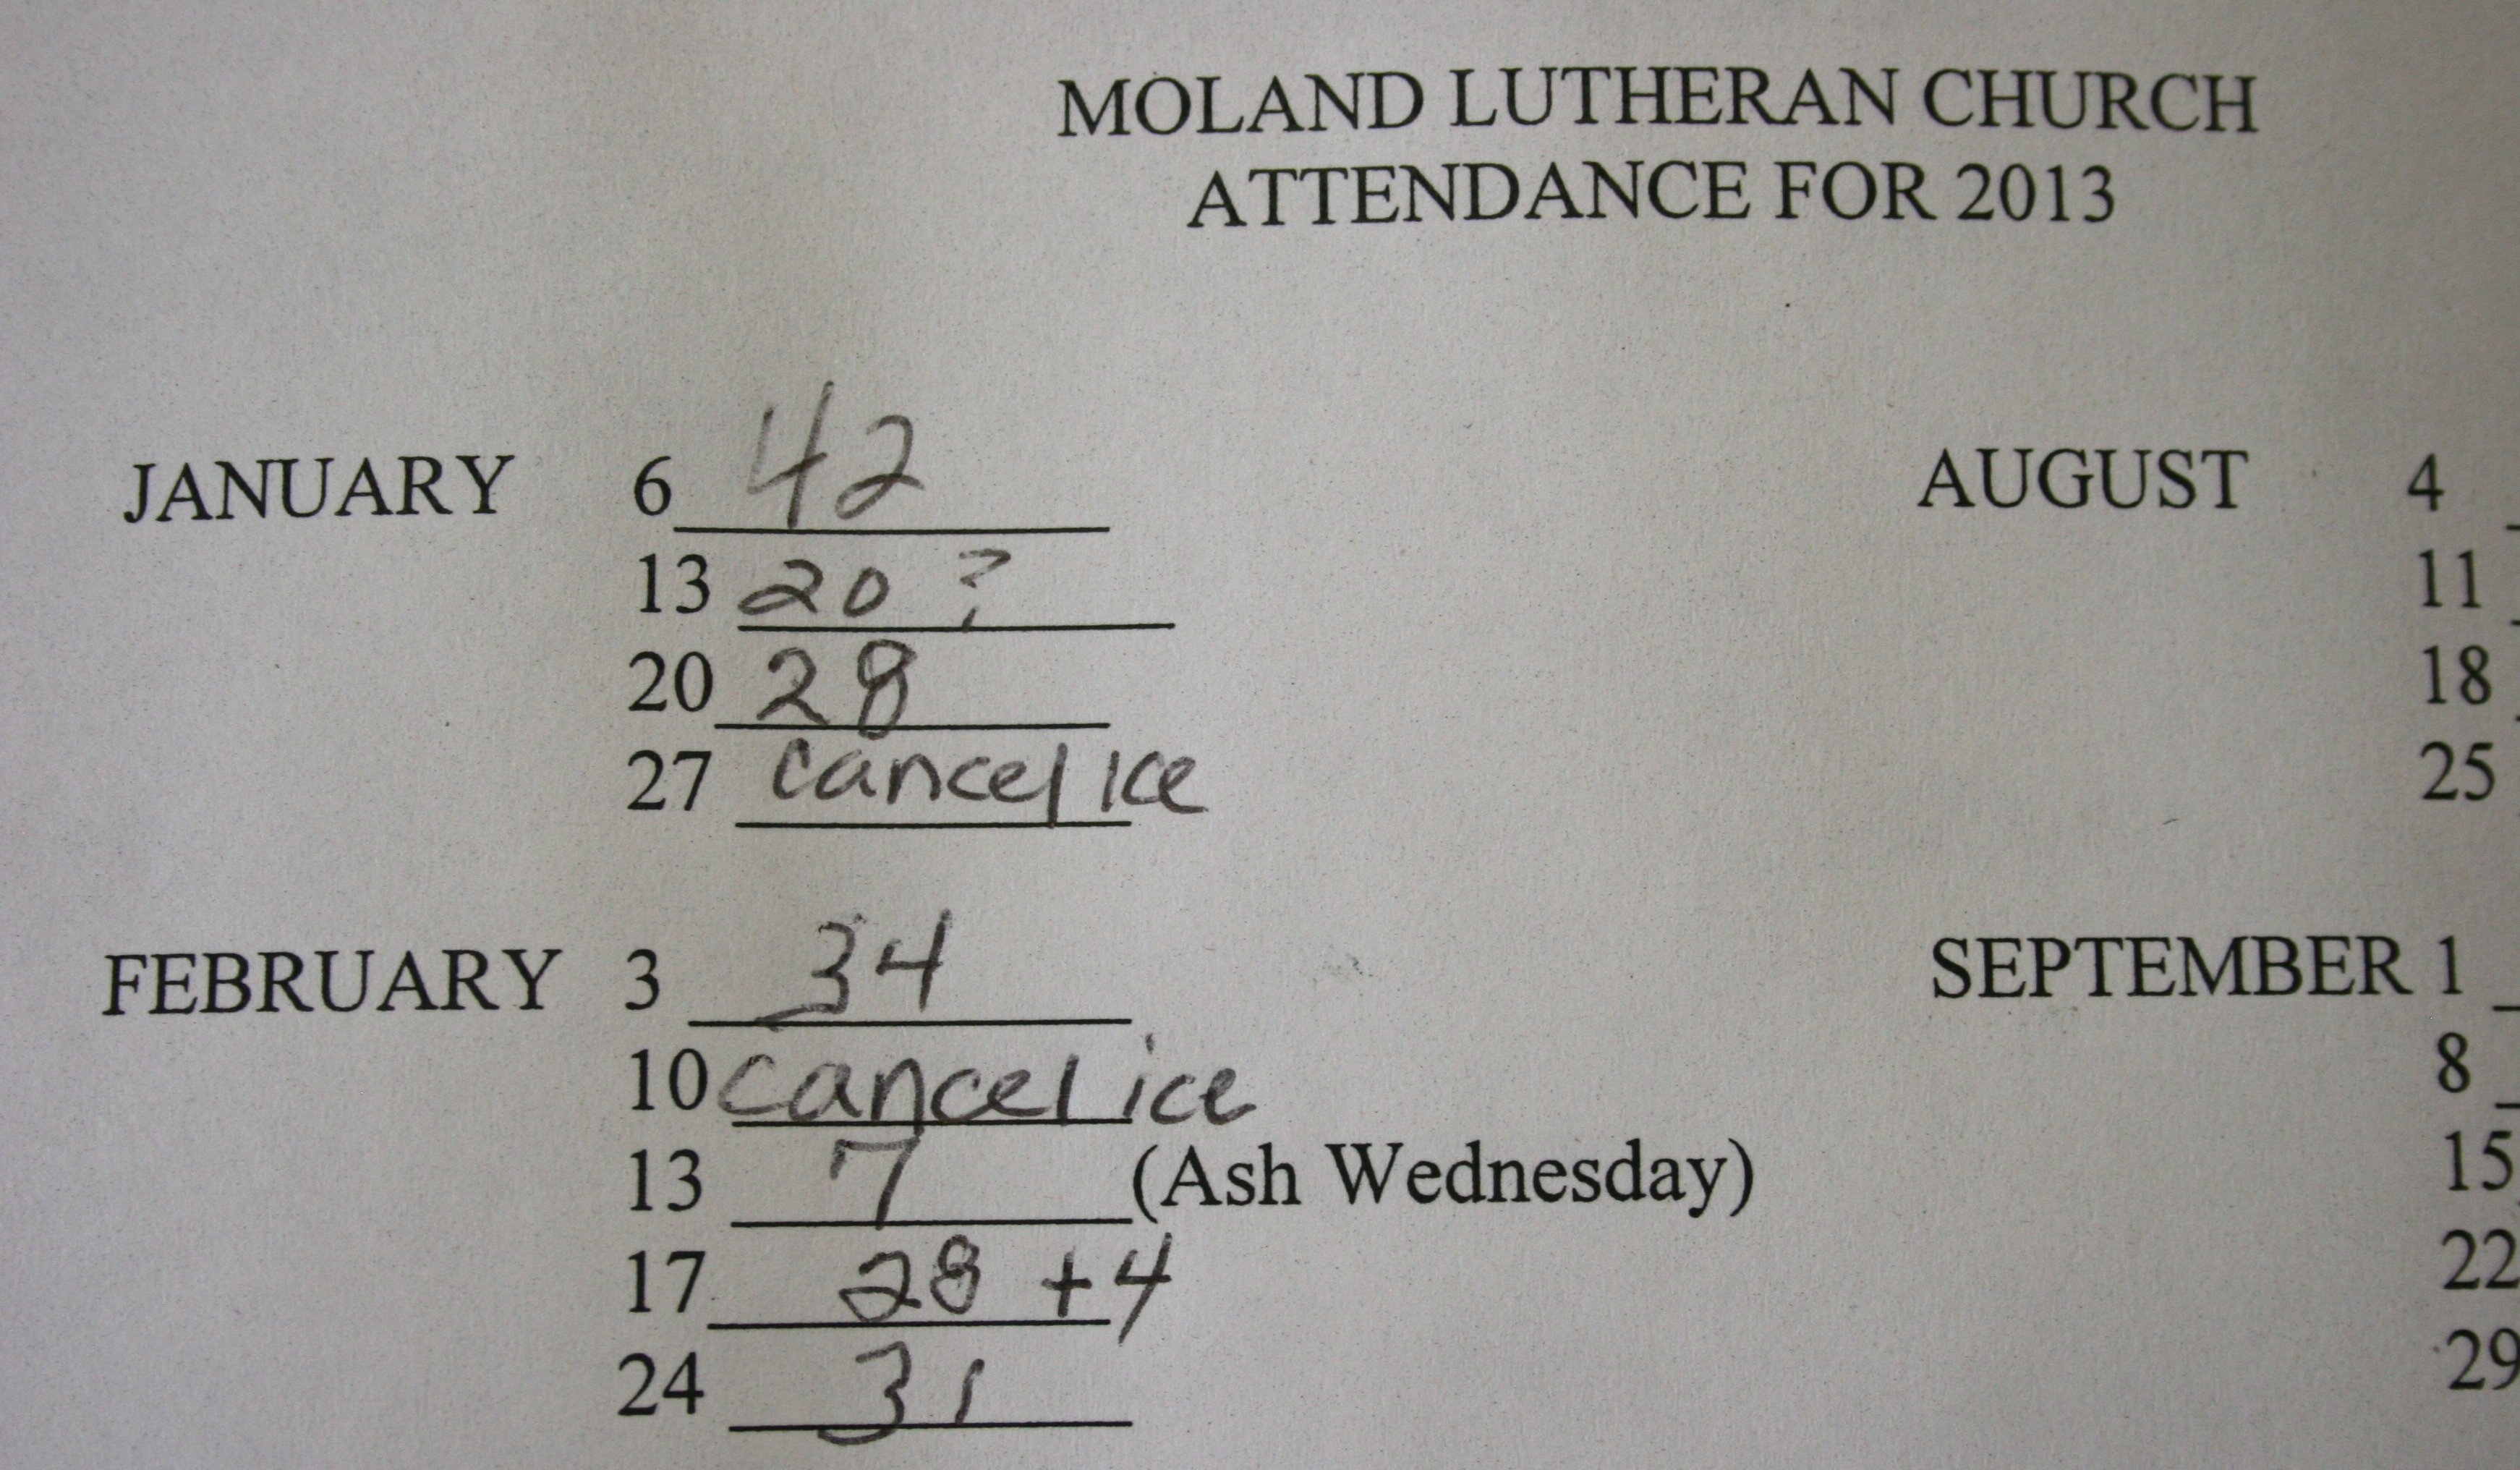 MOLAND LUTHERAN CHURCH
ATTENDANCE FOR 2013
JANUARY 6 42
13 20 ?
20 28
27 cancel ice
FEBRUARY 3 34
10 cancel ice
13 7 (Ash Wednesday)
17 28 +4
24 31
AUGUST 4
11
18
25
SEPTEMBER 1
8
15
22
29